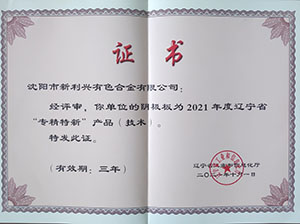 证书
沈阳市新利兴有色合金有限公司：
经评审，你单位的阴极板为2021年度辽宁省
“专精特新”产品（技术）。
特发此证。
（有效期：三年）
辽宁省工业和信息化厅
二〇二一年十月一日